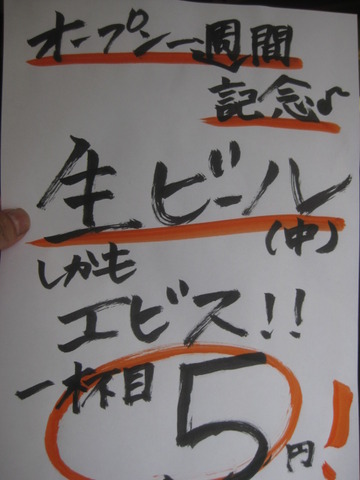 オープン一週間
記念♪
生ビール
(中)
しかも
エビス!!
一杯目
5円!